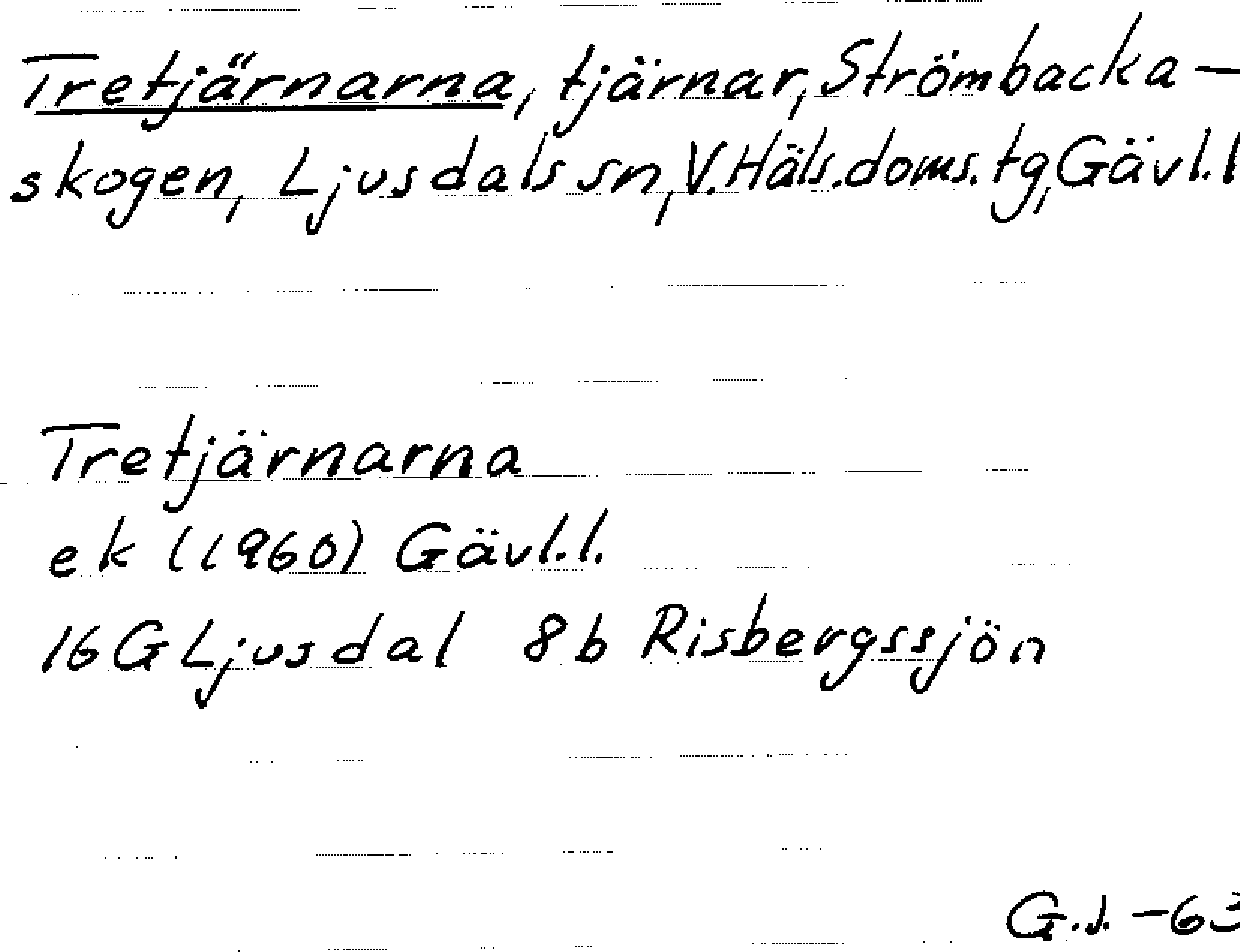 Tretjärnarna, tjärnar, Strömbacka-
skogen, Ljusdals sn, V. Häls. doms. tg, Gävl.l
Tretjärnarna
ek (1960) Gävl.l.
16G Ljusdal 8b Risbergssjön
G.J. -63